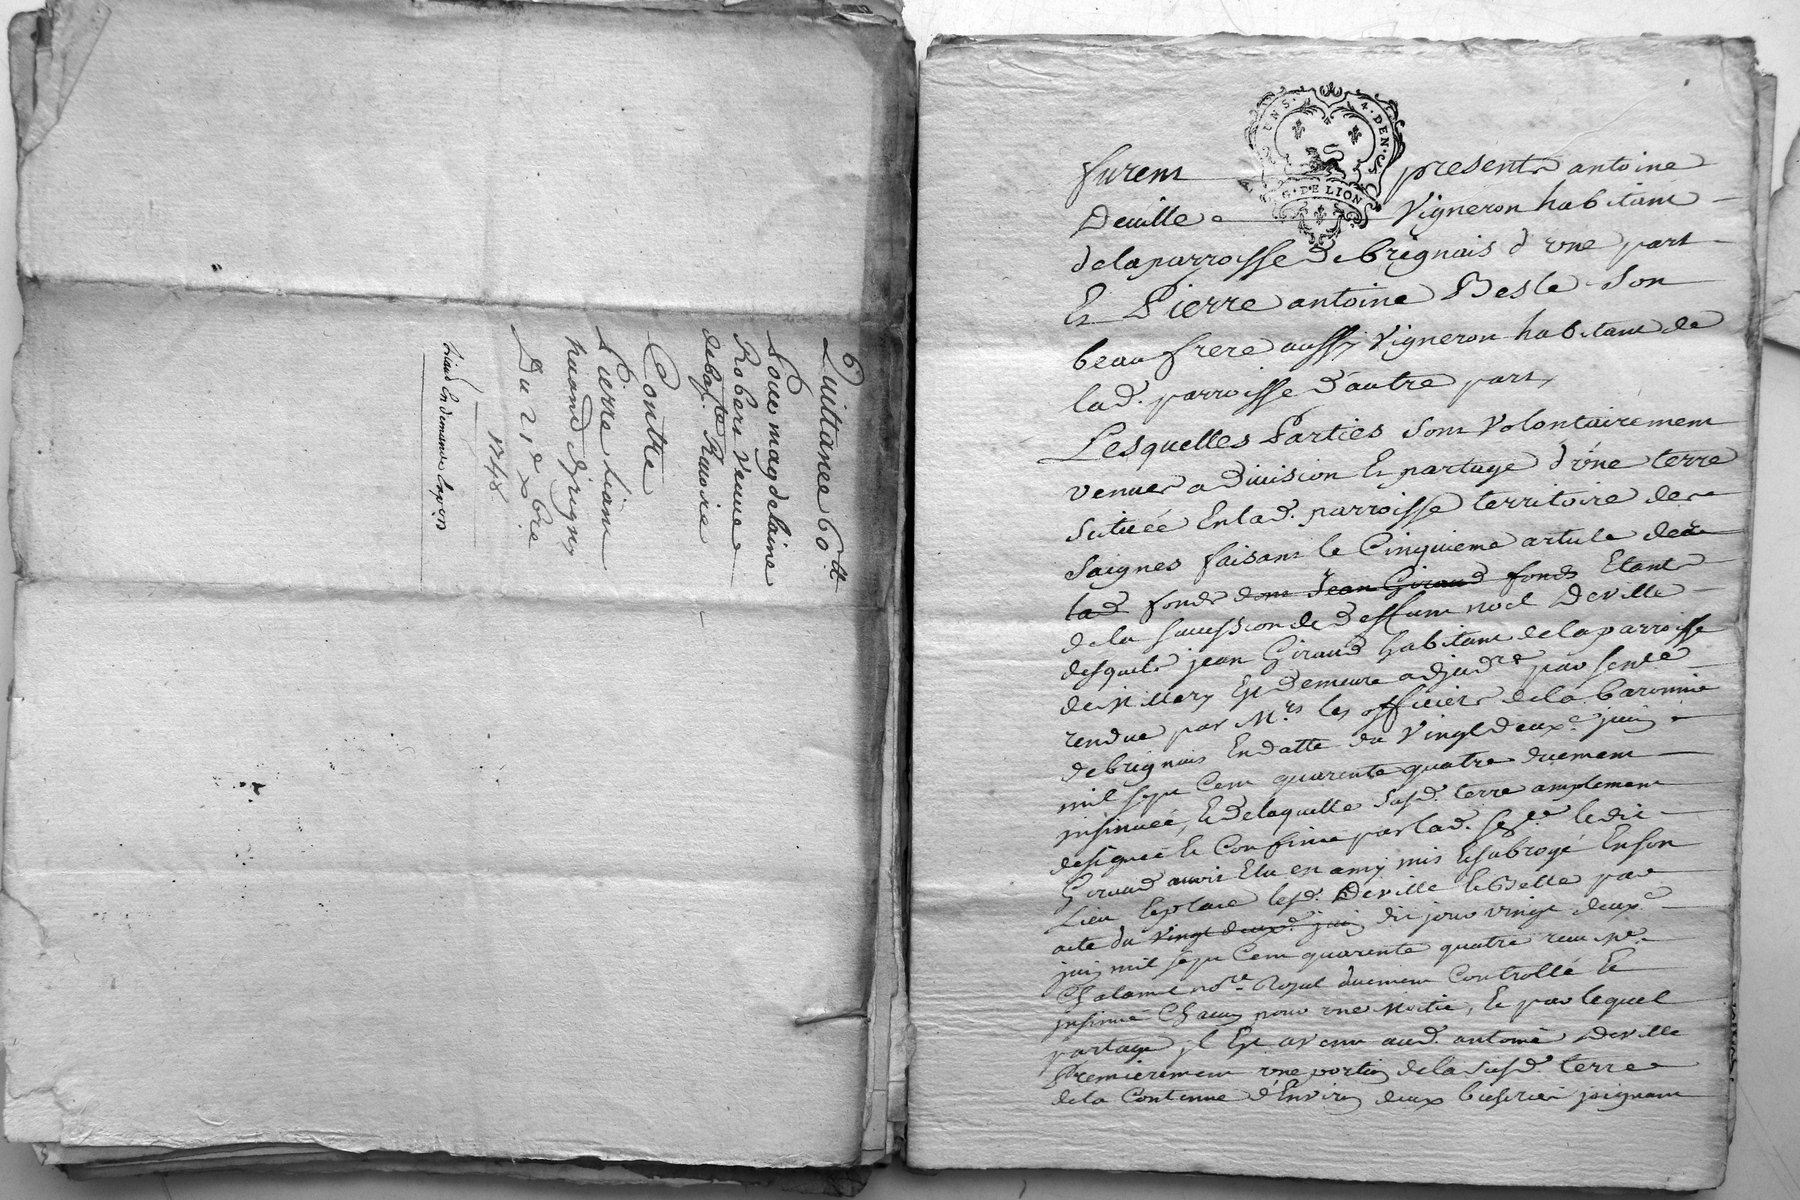 6
Quittance 60 lt
Pour magdelaine
Robert veuve
de bapte. Ravoire
Contre
Pierre
Du 21e xbre
1748
UN S. 4. DEN.
G. DE LION
furent presents antoine
Deville Vigneron habitant
de la parroisse de brignais d'une part
Et Pierre antoine Besle son
beau frere aussy Vigneron habitant de
lad. parroisse d'autre part,
Lesquelles Parties sont Volontairement
venues a division Et partage d'une terre
scituée En lad. parroisse territoire de
saignes faisant le Cinquieme article de
lad fonds dont Jean Giraud fonds Etants
de la succession de deffunt noel Deville
desquels jean Giraud habitant de la parroisse
de Millery Est demeuré adjudre par sence
rendue par Mrs les officiers de la baronnie
de brignais En datte du Vingt deuxe juin
mil sept Cent quarente quatre duement
insinuée, Et de laquelle susd. terre amplement
designée Et Confinée par lad. sence ledit
Giraud auroit Elu en amy mis Et subrogé En son
Lieu Et place lesd. Deville Et Belle par
acte du vingt deuxe juin dit jour vingt deuxe
juin mil sept Cent quarente quatre receu Me
Chalamel nore Royal duement Controllé Et
insinué Chacun pour une Moitié, Et par lequel
partage il Est avenu aud. antoine Deville
Premierement une portion de la susd. terre
de la Contenue d'Environ deux bicherées joignant